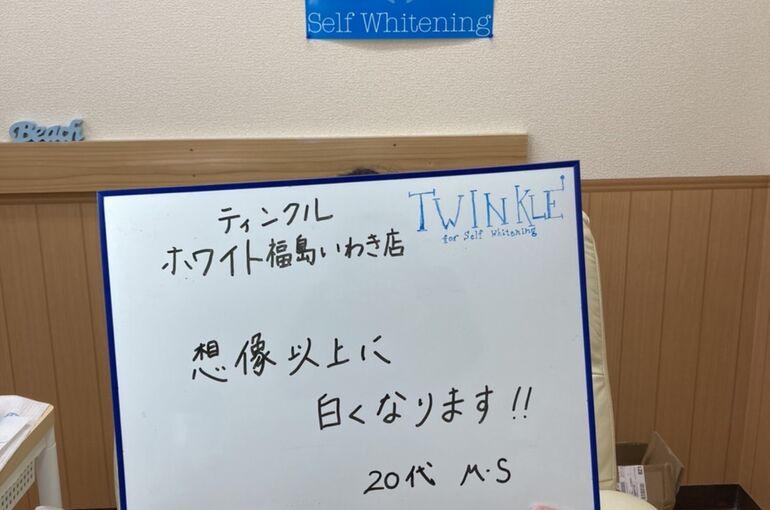 Self Whitening
Beach
ティンクル
ホワイト福島いわき店
TWINKLE
for Self Whitening
想像以上に
白くなります!!
20代 M・S